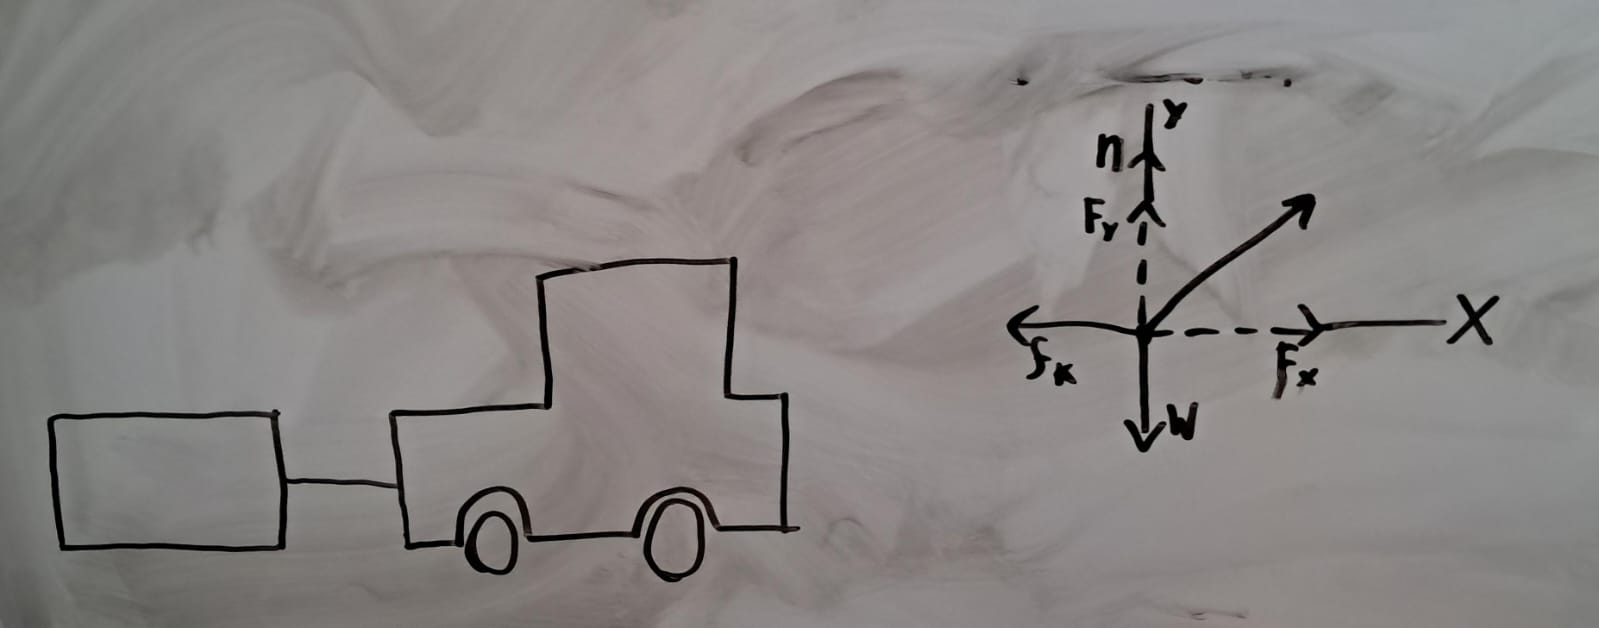 y
n
Fy
X
fk
Fx
W